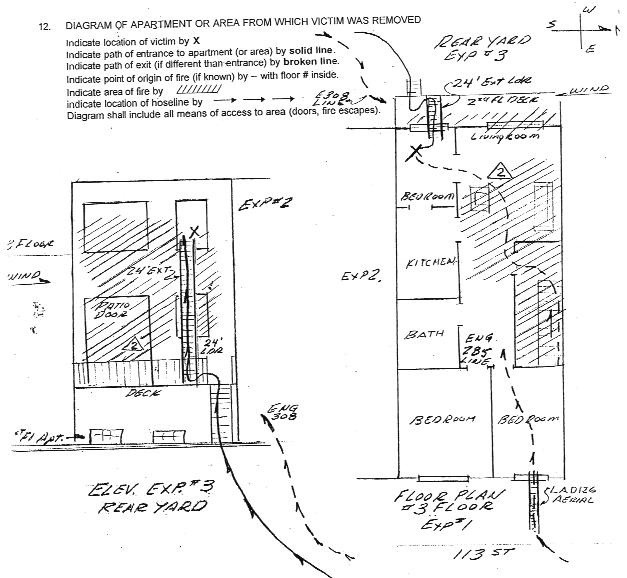 12. DIAGRAM OF APARTMENT OR AREA FROM WHICH VICTIM WAS REMOVED
Indicate location of victim by X
Indicate path of entrance to apartment (or area) by solid line.
Indicate path of exit (if different than entrance) by broken line.
Indicate point of origin of fire (if known) by – with floor # inside.
Indicate area of fire by /////////
indicate location of hoseline by
Diagram shall include all means of access to area (doors, fire escapes).
E308
LINE
W
S N
E
REAR YARD
EXP #3
24' EXT LDR
WIND
2nd FL DECK
LIVINGROOM
X
2
BEDROOM
EXP2.
KITCHEN
BATH
ENG
285
LINE
BEDROOM
BEDROOM
FLOOR PLAN
#3 FLOOR
EXP#1
LAD126
AERIAL
113 ST
EXP#2
3 FLOOR
X
24' EXT
WIND
PATIO
DOOR
2
24'
LDR
DECK
ENG
308
1st Fl Apt.
ELEV. EXP.#3
REAR YARD